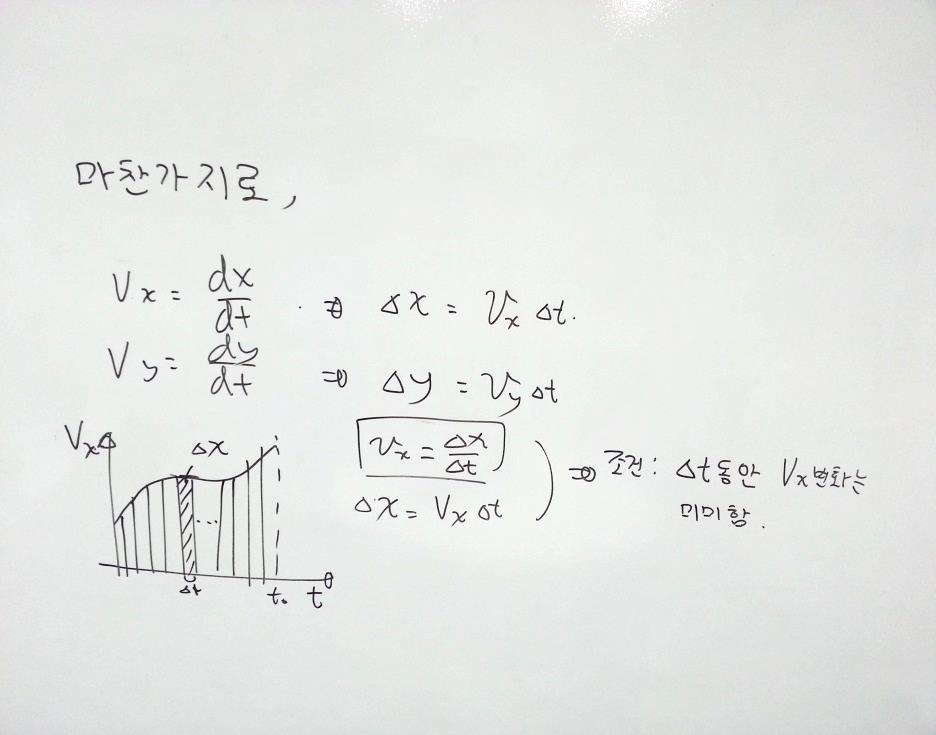 마찬가지로,
Vx = dx/dt ⇒ Δx = Vx Δt.
Vy = dy/dt ⇒ Δy = Vy Δt
Vx
Δx
Vx = Δx/Δt
Δx = Vx Δt
⇒ 조건: Δt동안 Vx변화는
미미함.
...
Δt
t₀
t